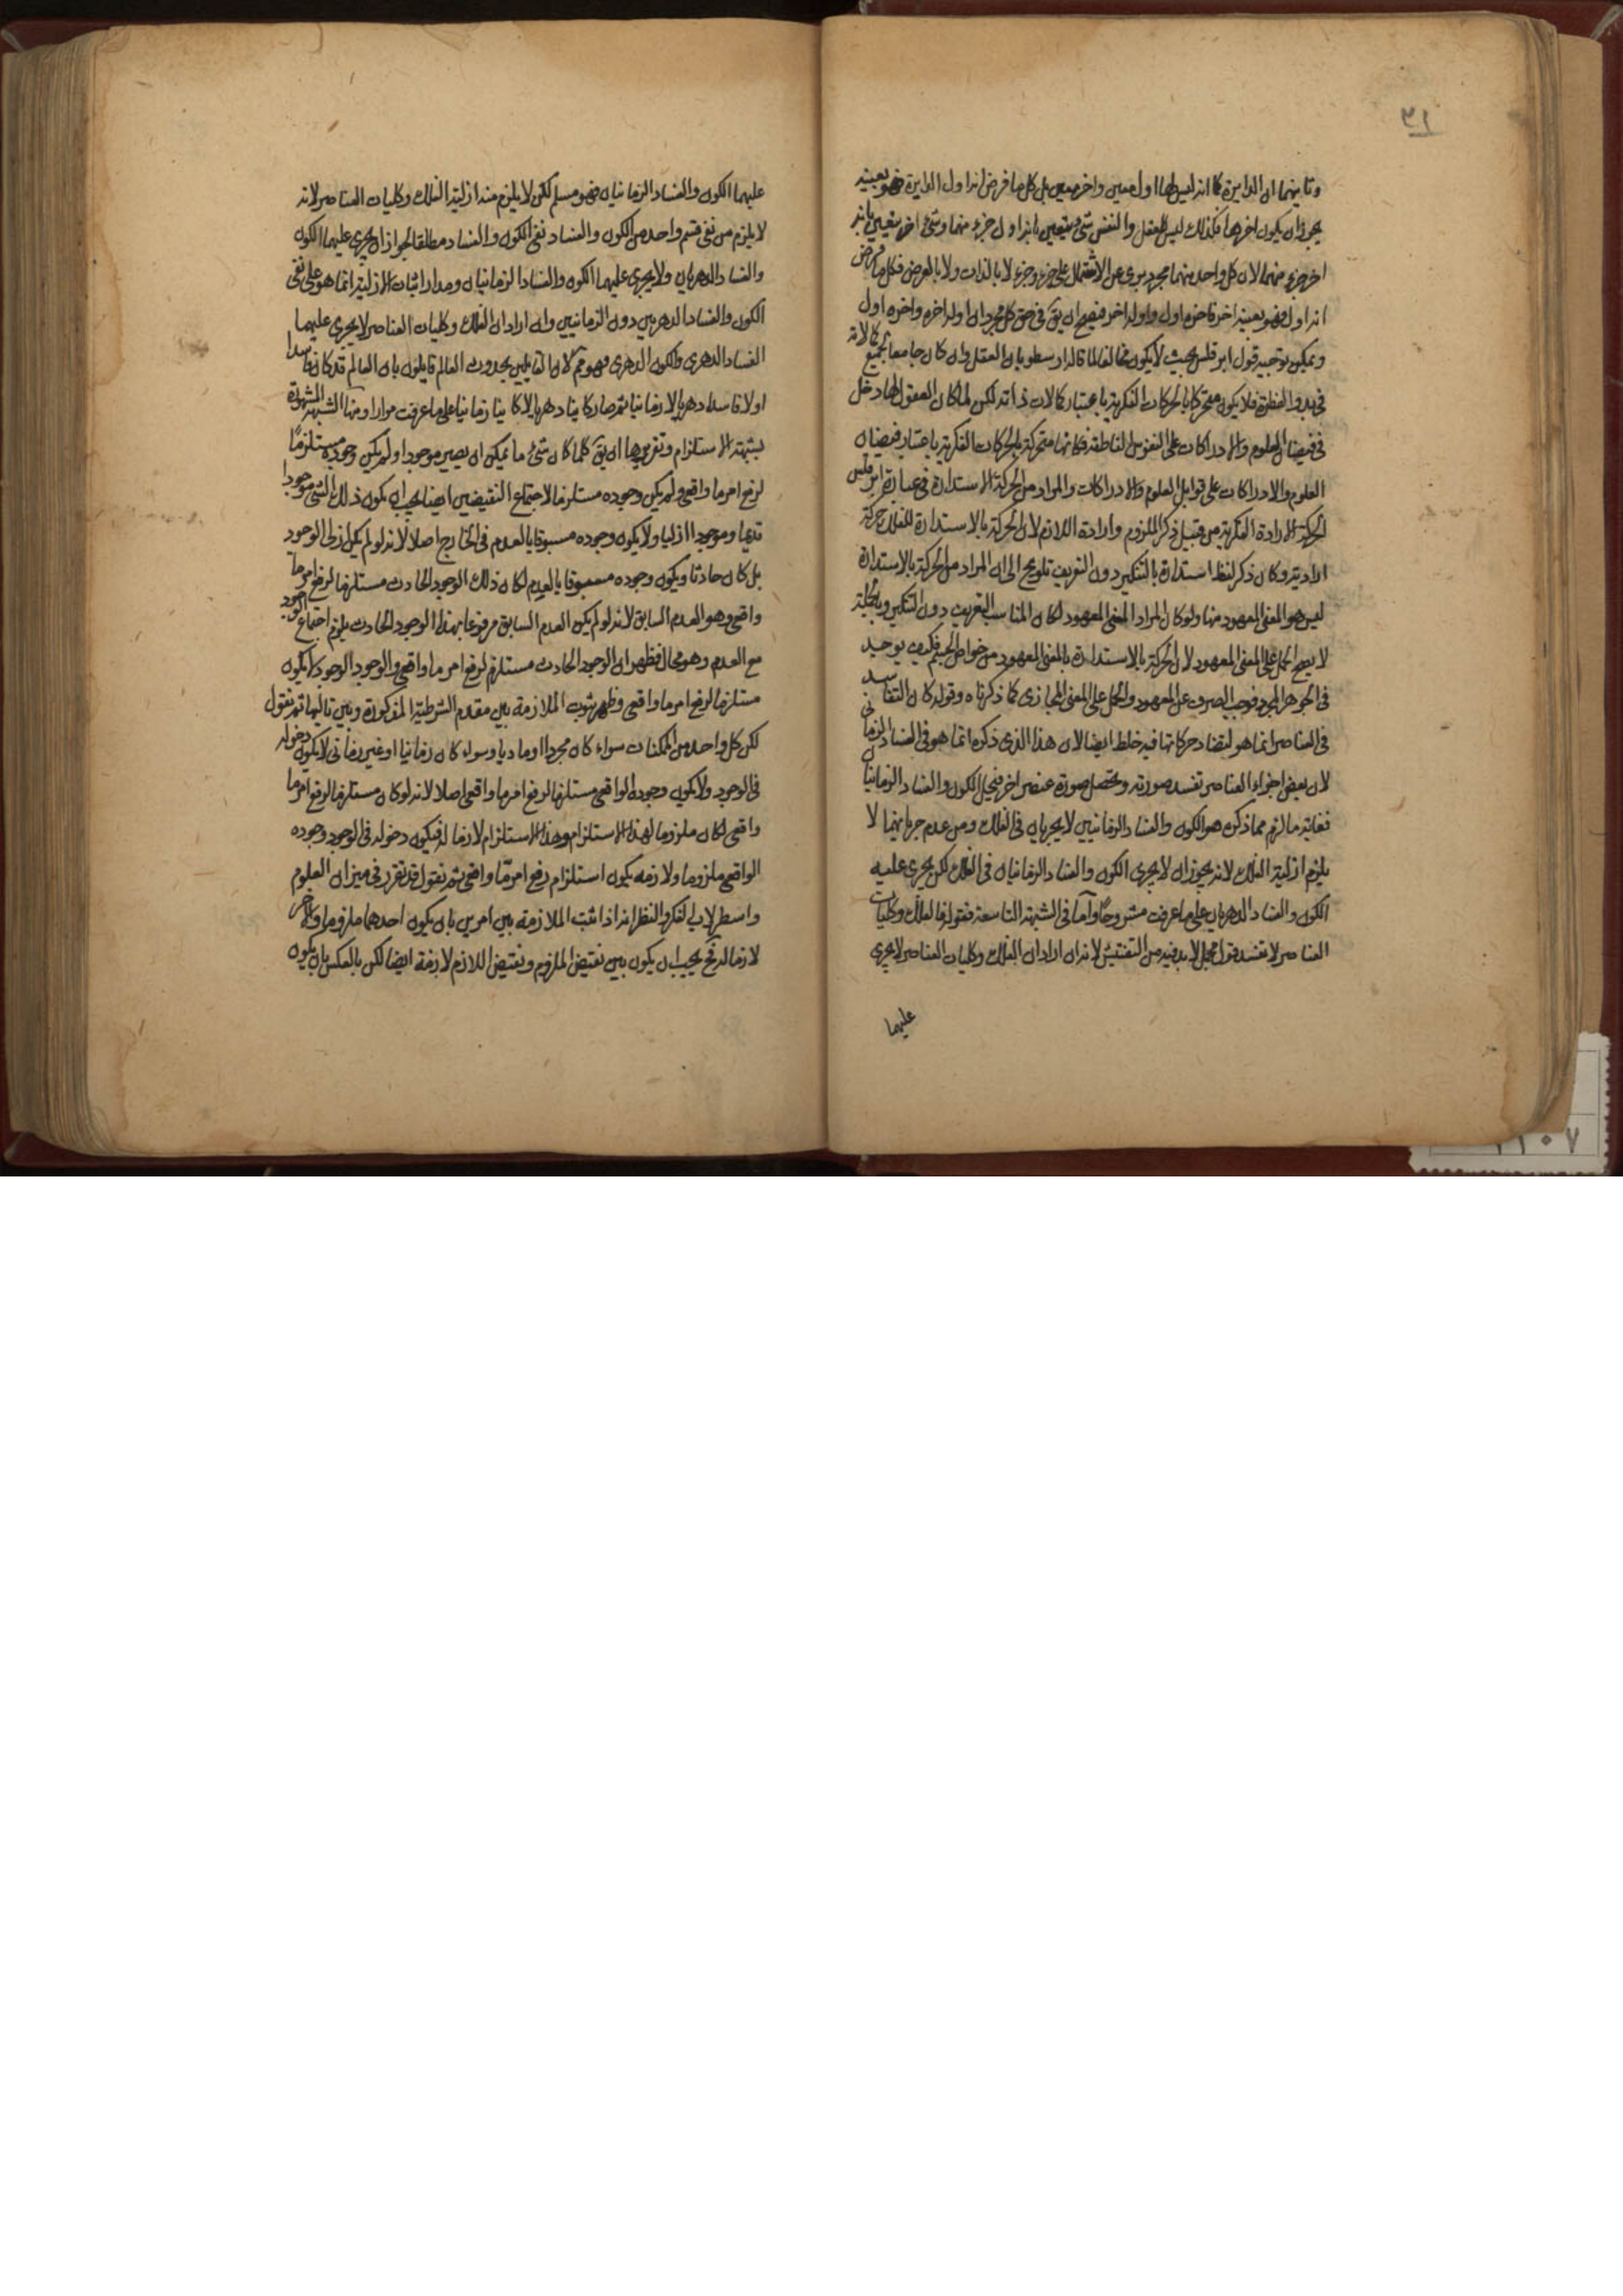 ٣١
وثانيهما ان الدايرة كما انه ليس لها اول معين واخر معين بل كل ما فرض انه اول الدايرة فهو بعينه
يجوز ان يكون اخرها فكذلك ليس للعقل والنفس شئ متعين بانه اول جزء منهما وشئ اخر متعين بانه
اخر جزء منهما لان كل واحد منهما مجرد برئ عن الاشتمال على جزء وجزء لا بالذات ولا بالعرض فكل ما فرض
انه اول فهو بعينه اخر فاخره اول واوله اخر فيصح ان يق في حق كل مجرد ان اوله اخره واخره اول
ويمكن توجيه قول ابرقلس بحيث لا يكون مخالفا لما قاله ارسطو بان العقل وان كان جامعا لجميع كمالاته
في بدو الفطرة فلا يكون متحركا بالحركات الفكرية باعتبار كمالات ذاته لكن لما كان العقول لها دخل
في فيضان العلوم والادراكات على النفوس الناطقة فكانها متحركة بالحركات الفكرية باعتبار فيضان
العلوم والادراكات على قوابل العلوم والادراكات والمراد من الحركة الاستدارة في عبارة ابرقلس
الحركة الارادة الفكرية من قبيل ذكر الملزوم وارادة اللازم لان الحركة بالاستدارة للفلك حركة
ارادية وكان ذكر لفظ استدارة بالتنكير دون التعريف تلويح الى ان المراد من الحركة بالاستدارة
ليس هو المعنى المعهود منها ولو كان المراد المعنى المعهود لكان المناسب التعريف دون التنكير وبالجملة
لا يصح الحمل على المعنى المعهود لان الحركة بالاستدارة بالمعنى المعهود من خواص الجسم فكيف يوجد
في الجوهر المجرد فوجب الصرف عن المعهود والحمل على المعنى المجازى كما ذكرناه وقوله كان التفاسد
في العناصر انما هو لتضاد حركاتها فيه خلط ايضا لان هذا الذى ذكره انما هو في الفساد الزمانى
لان بعض اجزاء العناصر تفسد صورته وتحصل صورة عنصر اخر فيجئ الكون والفساد الزمانيان
فغاية ما لزم مما ذكره هو الكون والفساد الزمانيين لا يجريان في الفلك ومن عدم جريانهما لا
يلزم ازلية الفلك لانه يجوز ان لا يجرى الكون والفساد الزمانيان في الفلك لكن يجرى عليه
الكون والفساد الدهريان على ما عرفت مشروحا واما في الشبهة التاسعة فقوله فالفلك وكليات
العناصر لا تفسد قول مجمل لا بد فيه من التفتيش لانه ان اراد ان الفلك وكليات العناصر لا يجرى
عليهما
عليهما الكون والفساد الزمانيان فهو مسلم لكن لا يلزم منه ازلية الفلك وكليات العناصر لانه
لا يلزم من نفى قسم واحد من الكون والفساد نفى الكون والفساد مطلقا لجواز ان يجرى عليهما الكون
والفساد الدهريان ولا يجرى عليهما الكون والفساد الزمانيان ومدار اثبات الازلية انما هو على نفى
الكون والفساد الدهريين دون الزمانيين وان اراد ان الفلك وكليات العناصر لا يجرى عليهما
الفساد الدهرى والكون الدهرى فهو مم لان القايلين بحدوث العالم قايلون بان العالم قد كان فاسدا
اولا فاسدا دهريا لا زمانيا ثم صار كاينا دهريا لا كاينا زمانيا على ما عرفت مرارا ومنها الشبهة المشهورة
بشبهة الاستلزام وتقريرها ان يق كلما كان شئ ما يمكن ان يصير موجودا ولم يكن وجوده مستلزما
لرفع امر ما واقعى ولم يكن وجوده مستلزما لاجتماع النقيضين ايضا يجب ان يكون ذلك الشئ موجودا
قديما وموجودا ازليا ولا يكون وجوده مسبوقا بالعدم في الخارج اصلا لانه لو لم يكن ازلى الوجود
بل كان حادثا ويكون وجوده مسبوقا بالعدم لكان ذلك الوجود الحادث مستلزما لرفع امر ما
واقعى وهو العدم السابق لانه لو لم يكن العدم السابق مرفوعا بهذا الوجود الحادث يلزم اجتماع الوجود
مع العدم وهو محال فظهر ان الوجود الحادث مستلزم لرفع امر ما واقعى والوجود الوجود لا يكون
مستلزما لرفع امر ما واقعى وظهر ثبوت الملازمة بين مقدم الشرطية المذكورة وبين تاليها ثم نقول
لكن كل واحد من الممكنات سواء كان مجردا او ماديا وسواء كان زمانيا او غير زمانى لا يكون دخوله
في الوجود ولا يكون وجوده الواقعى مستلزما لرفع امر ما واقعى اصلا لانه لو كان مستلزما لرفع امر ما
واقعى لكان ملزوما لهذا الاستلزام وهذا الاستلزام لازما له فيكون دخوله في الوجود وجوده
الواقعى ملزوما ولازمه يكون استلزام رفع امر ما واقعى ثم نقول قد تقرر في ميزان العلوم
واسطرلاب الفكر والنظر انه اذا ثبت الملازمة بين امرين بان يكون احدهما ملزوما والاخر
لازما له فح يجب ان يكون بين نقيض الملزوم ونقيض اللازم لازمة ايضا لكن بالعكس بان يكون